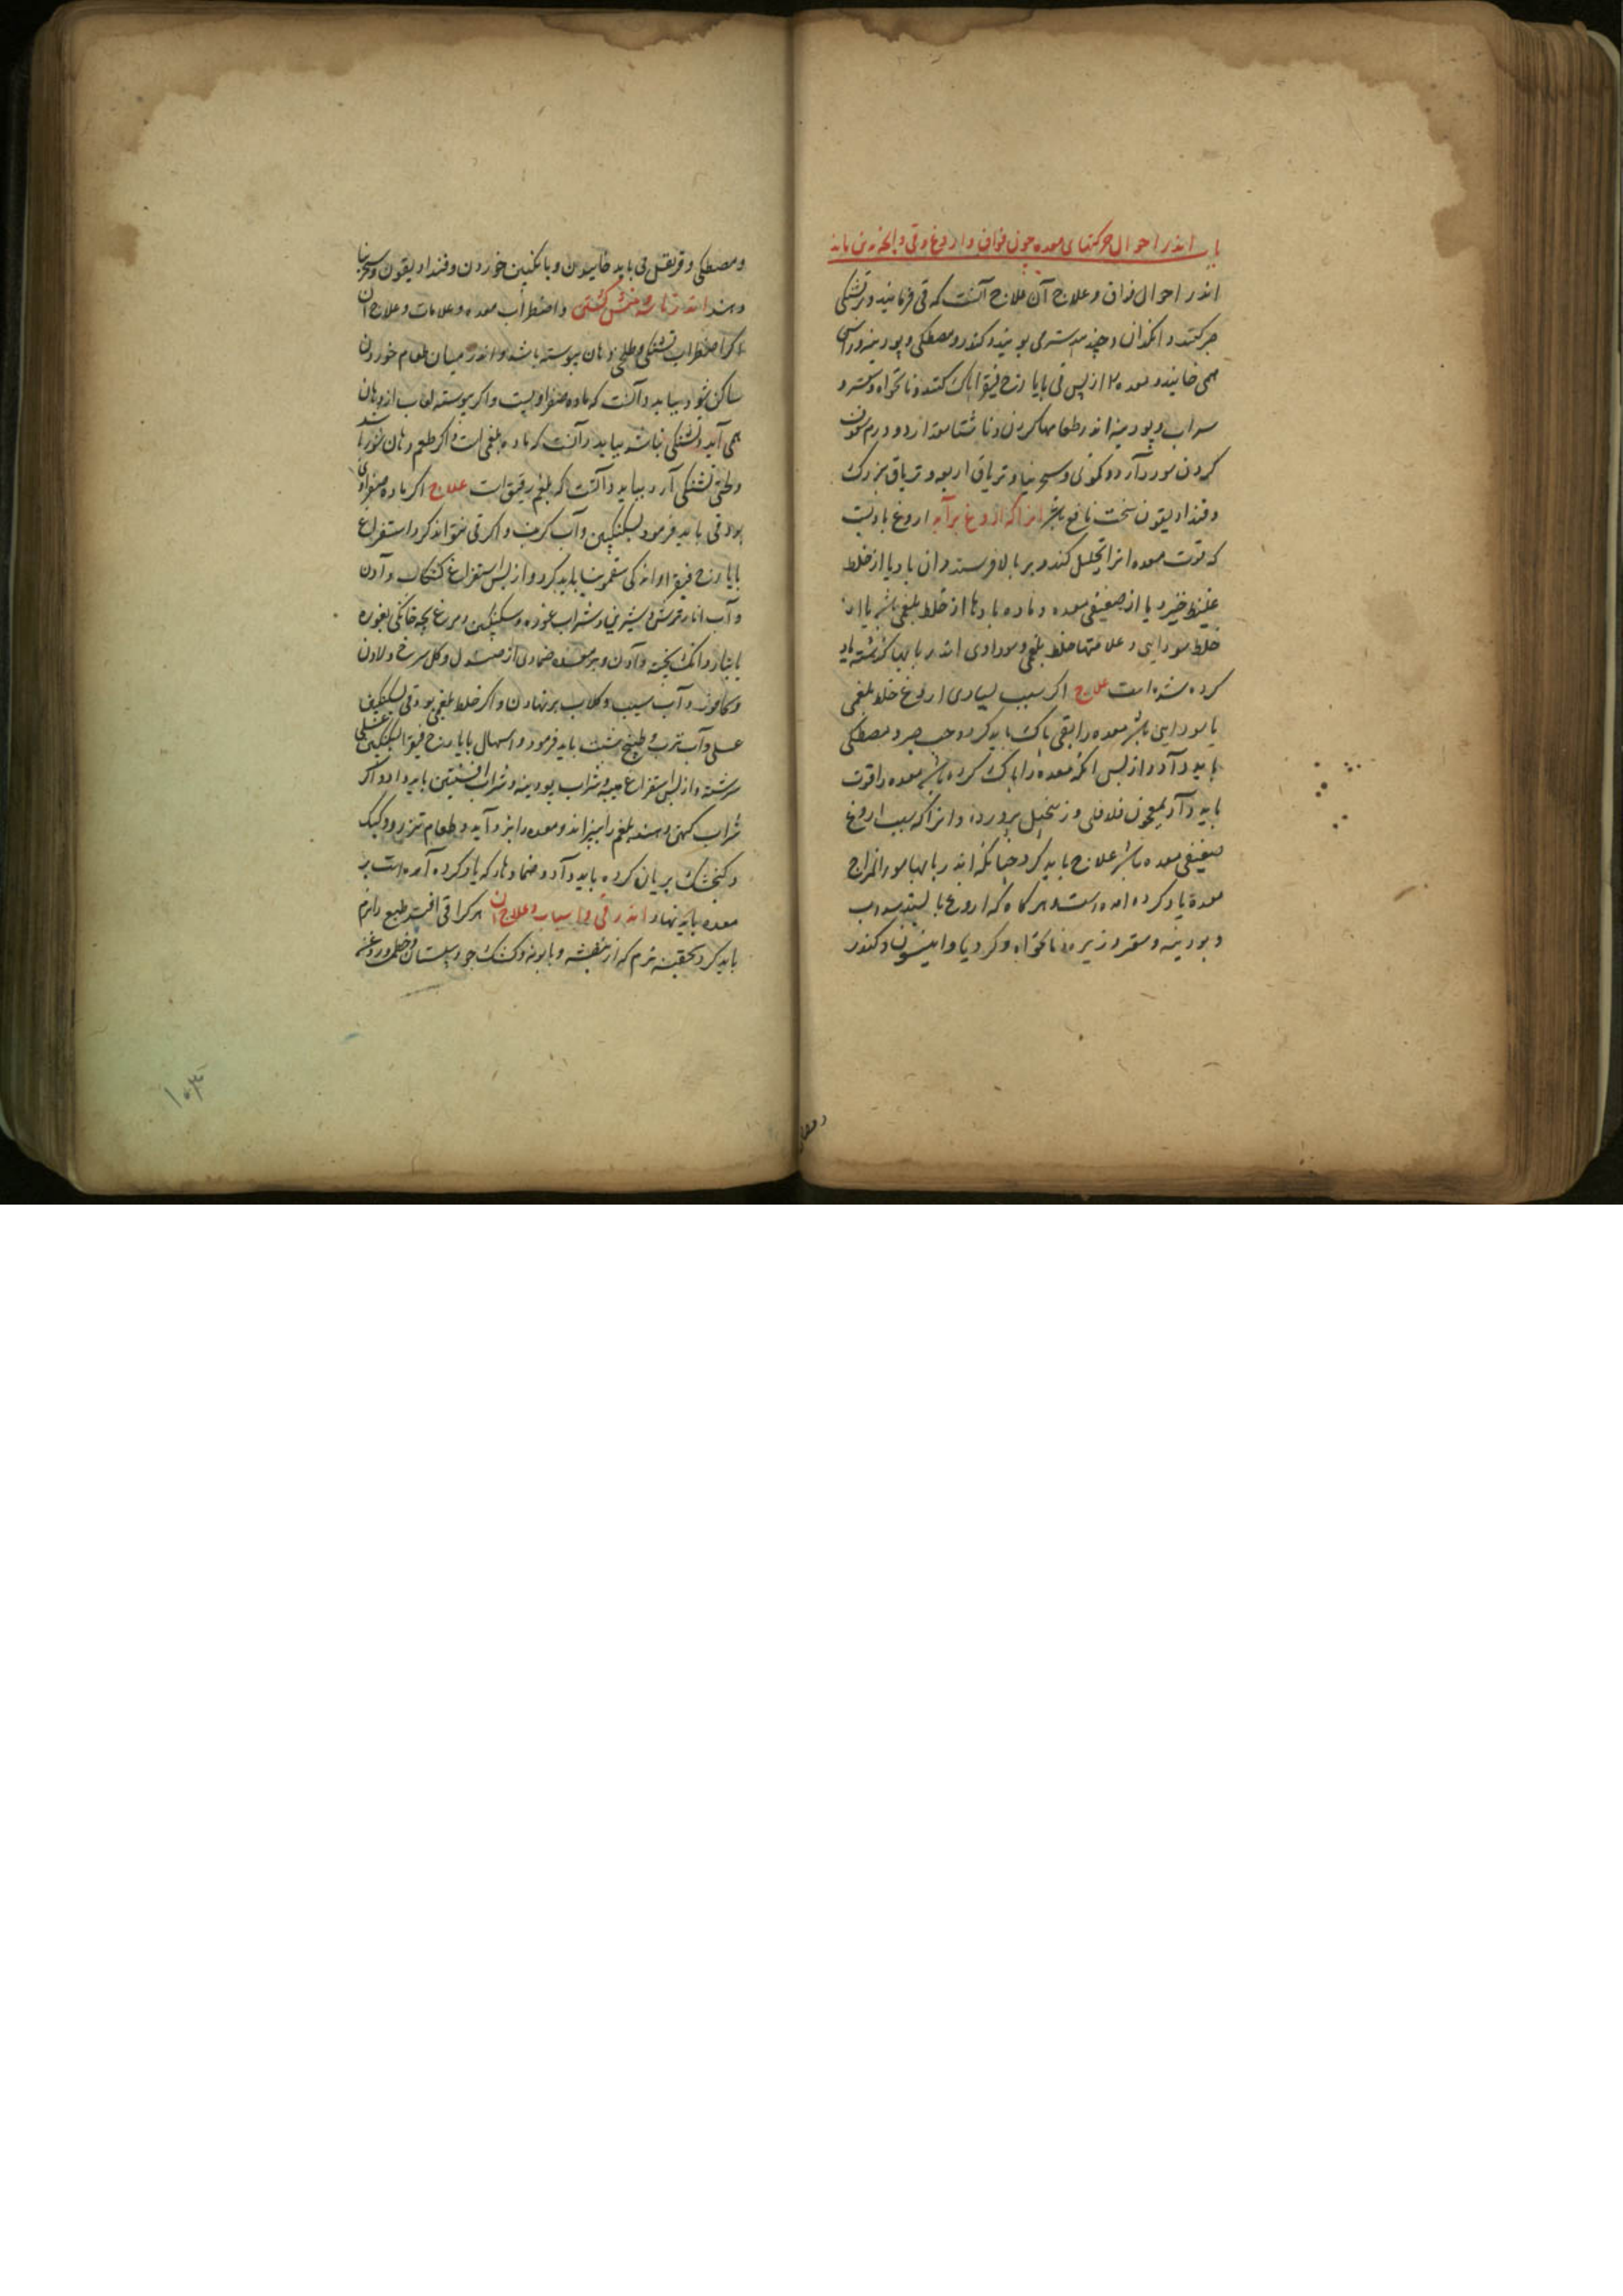 باب اندر احوال حرکتهای معده چون فواق و اروغ و قی و آنچه بدین ماند
اندر احوال فواق و علاج آن علاج آنست که قی فرمایند و بر تشنگی
صبر کنند و انگدان و جندبیدستر می بویند و کندر و مصطکی و پودینه و راسن
همی خایند و معده را از پس قی بایارج فیقرا پاک کنند و نانخواه و سعتر و
سداب و پودینه اندر طعامها کردن و ناشتا مقدار دو درم معجون
کردن سود دارد و کمونی و سجزنیا و تریاق اربعه و تریاق بزرگ
و فندادیقون سخت نافع باشد انرا که اروغ برآید اروغ بادیست
که قوت معده انرا تحلیل کند و بر بالا فرستد و ان باد یا از خلط
غلیظ خیزد یا از ضعیفی معده و ماده بادها از خلط بلغمی باشد یا از
خلط سودایی و علامتها خلط بلغمی و سوداوی اندر بابها گذشته یاد
کرده شده است علاج اگر سبب بسیاری اروغ خلط بلغمی
یا سودایی باشد معده را بقی پاک باید کرد و حب صبر و مصطکی
باید داد و از پس انکه معده را پاک کرده باشد معده را قوت
باید داد بمعجون فلافلی و زنجبیل پرورده و انرا که سبب اروغ
ضعیفی معده باشد علاج باید کرد چنانکه اندر بابها سوء المزاج
معده یاد کرده امده است و هر گاه که اروغ با لبند سداب
و پودینه و سعتر و زیره و نانخواه و کرویا و انیسون و کندر
و مصطکی و قرنفل می باید خاییدن و بانگبین خوردن و فندادیقون و سجزنیا
دهند اندر تاسه و منش گشتن و اضطراب معده و علامات و علاج ان
اگر اضطراب و تشنگی و طلخی دهان پیوسته باشد و اندر میان طعام خوردن
ساکن شود بباید دانست که ماده صفراویست و اگر پیوسته لعاب از دهان
همی آید و تشنگی نباشد بباید دانست که ماده بلغمی است و اگر طعم دهان شور باشد
و لختی تشنگی آرد بباید دانست که بلغم رقیق است علاج اگر ماده صفراوی
بود قی باید فرمود بسکنگبین و آب گرم و اگر قی نتواند کرد استفراغ
بایارج فیقرا و اندکی سقمونیا باید کرد و از پس استفراغ کشکاب دادن
و آب انار ترش و شیرین و شراب غوره و سکنگبین و مرغ بچه خانگی بغوره
یا بناردانک پخته دادن و بر معده ضمادی از صندل و گل سرخ و لادن
و کافور و آب سیب و گلاب بر نهادن و اگر خلط بلغمی بود قی بسکنگبین
عسلی و آب ترب و طبیخ شبت باید فرمود و اسهال بایارج فیقرا بسکنگبین عسلی
سرشته و از پس استفراغ میبه و شراب پودینه و شراب افسنتین باید داد و اگر
شراب کهن دهند بلغم را بپزاند و معده را بزداید و طعام تذرو و کبک
و گنجشک بریان کرده باید داد و ضمادها که یاد کرده آمده است بر
معده باید نهاد اندر قی و اسباب و علاج ان هر کرا قی افتد طبع را نرم
باید کرد بحقنه نرم که از بنفشه و بابونه و کشک جو و سپستان و خطمی و روغن
و مصط
۱۰۳